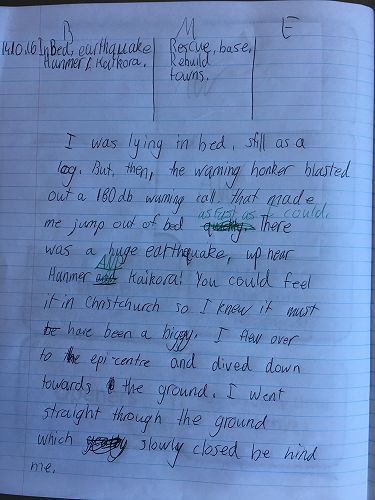 B M E
14.10.16 In Bed, earthquake Rescue, base,
Hanmer & Kaikora. Rebuild
towns.
I was lying in bed, still as a
log. But, then, the warning honker blasted
out a 180 db warning call, that made
as fast as I could.
me jump out of bed There
was a huge earthquake, up near
And
Hanmer Kaikora! You could feel
it in Christchurch so I knew it must
have been a biggy. I flew over
to the epi-centre and dived down
towards the ground. I went
straight through the ground
which slowly closed be hind
me.